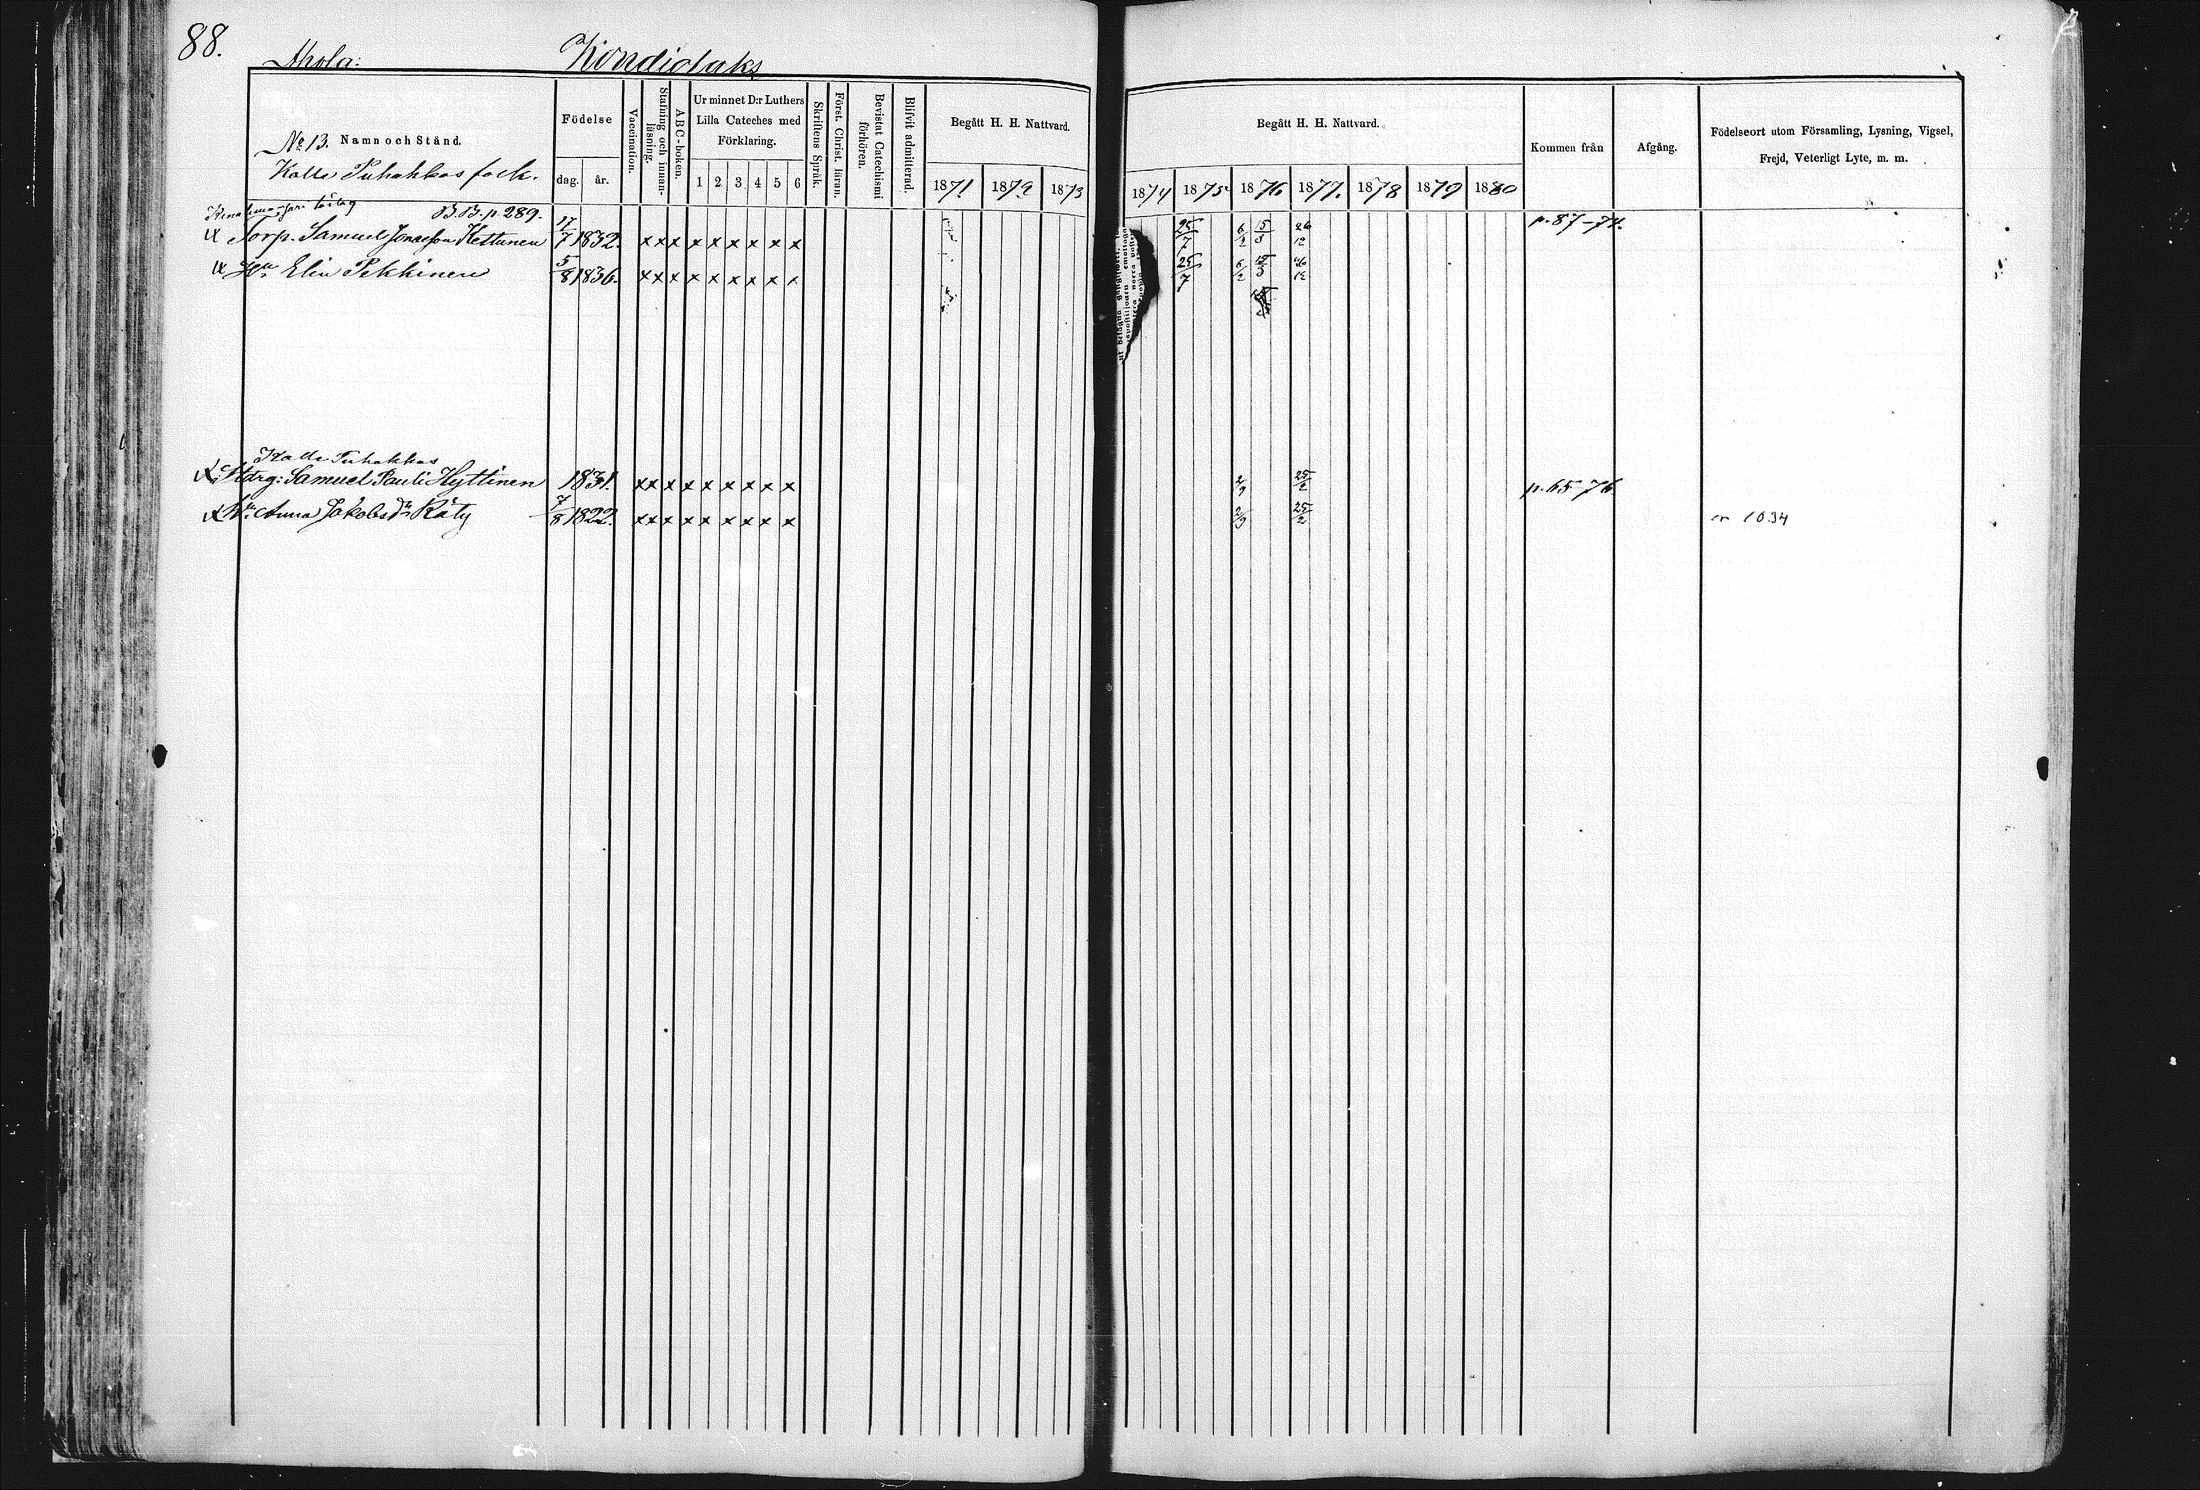 88.
Ahola: Kondiolaks
No 13. Namn och Stånd.
Kalle Puhakkas folk.
Födelse
dag. år.
Vaccination.
Stafning och innan-läsning.
ABC-boken.
Ur minnet D:r Luthers
Lilla Cateches med
Förklaring.
1 2 3 4 5 6
Skriftens Språk.
Först. Christ. läran.
Bevistat Catechismi förhören.
Blifvit admitterad.
Begått H. H. Nattvard.
1871. 1872. 1873
Begått H. H. Nattvard.
1874 1875 1876 1877. 1878 1879 1880
Kommen från
Afgång.
Födelseort utom Församling, Lysning, Vigsel,
Frejd, Veterligt Lyte, m. m.
B.B. p. 289.
Torp. Samuel Jonasson Hettunen 17/7 1832. x x x x x x x x x 25/7 6/2 5/3 26/12 p. 87-74.
Hu Elin Pekkinen 5/8 1836. x x x x x x x x x 25/7 6/2 26/12
Kalle Puhakkas
Samuel Pauli Hyttinen 1831. x x x x x x x x x 2/9 25/2 p. 65-76
Anna Jakobsdr Räty 7/8 1822. x x x x x x x x x 2/9 25/2 1034